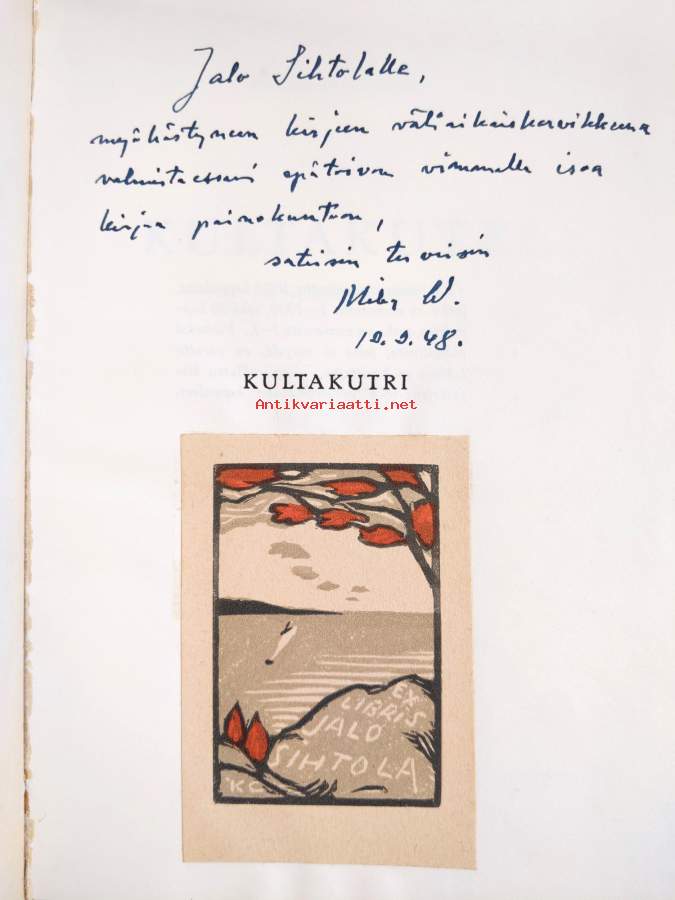 Jalo Sihtolalle,
myöhästyneen kirjeen väliaikaiskorvikkeena
valmistaessani epätoivon vimmalla isoa
kirjaa painokuntoon,
satoisin terveisin
Mika W.
10.9.48.
KULTAKUTRI
Antikvariaatti.net
EX
LIBRIS
JALO
SIHTOLA
KC